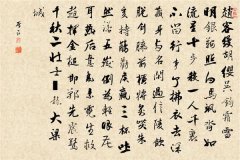 趙客縵胡纓吳鉤霜雪
明銀鞍照白馬颯沓如
流星十步殺一人千里
不留行事了拂衣去深
藏身與名閑過信陵飲
脫劍膝前橫將炙啖朱
亥持觴勸侯嬴三杯吐
然諾五嶽倒為輕眼花
耳熱後意氣素霓生救
趙揮金錘邯鄲先震驚
千秋二壯士烜赫大梁
城